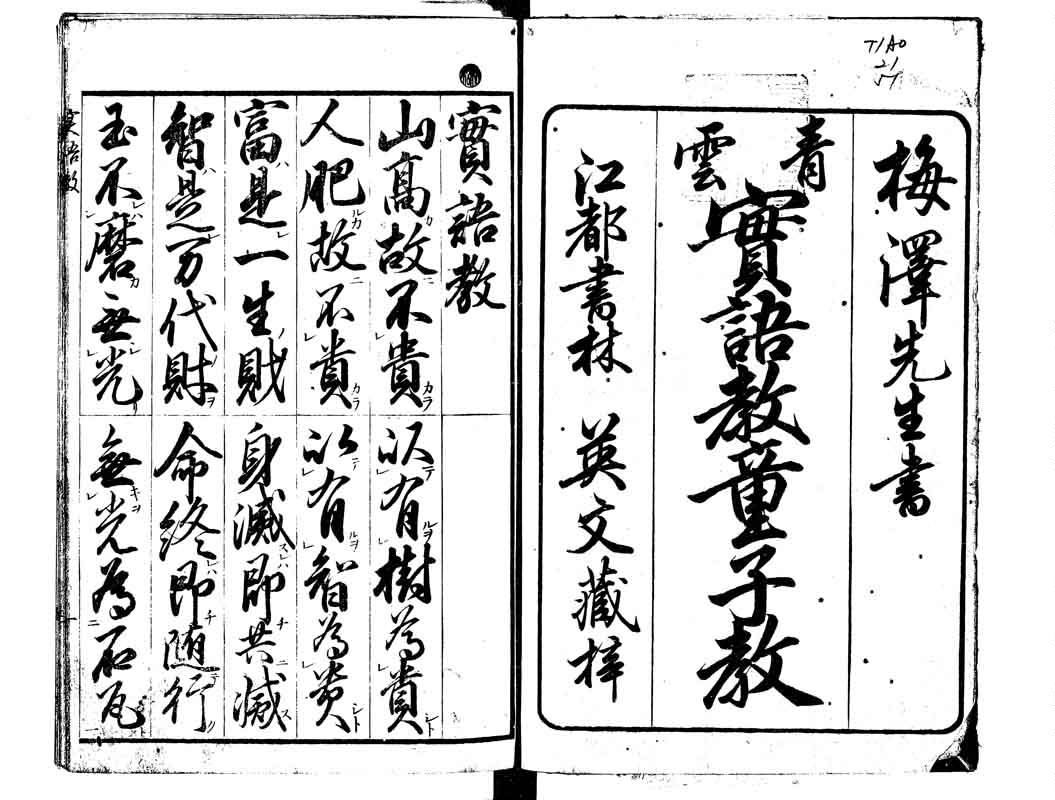 T1A0
21
57
梅澤先生書
青雲
實語教童子教
江都書林 英文藏梓
實語教
山高故不貴 以有樹為貴
人肥故不貴 以有智為貴
富是一生財 身滅即共滅
智是万代財 命終即随行
玉不磨無光 無光為石瓦